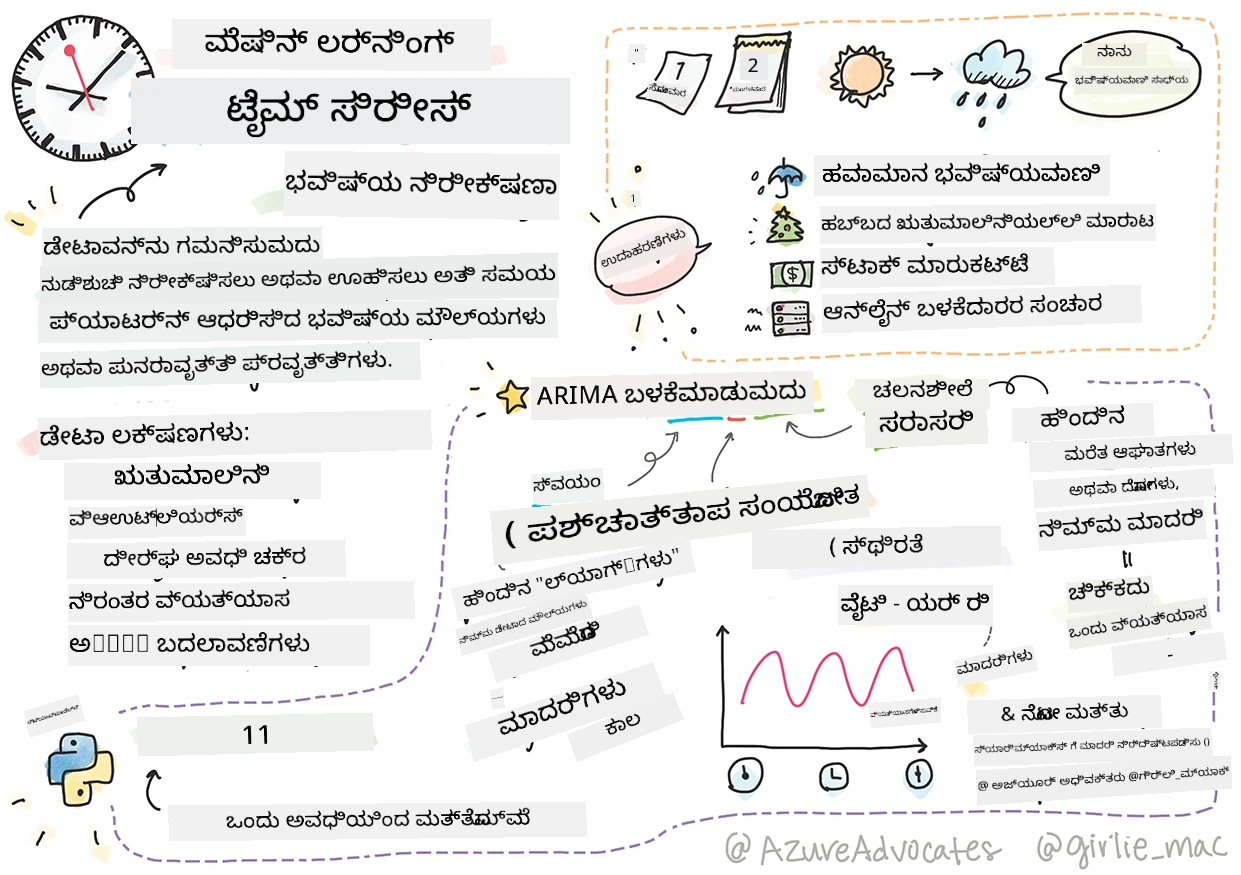 ಮೆಷಿನ್ ಲರ್ನಿಂಗ್
ಟೈಮ್ ಸಿರೀಸ್
ಭವಿಷ್ಯ ನಿರೀಕ್ಷಣಾ
ಡೇಟಾವನ್ನು ಗಮನಿಸುಮದು
ನುಡಿಶುಚಿ ನಿರೀಕ್ಷಿಸಲು ಅಥವಾ ಊಹಿಸಲು ಅತಿ ಸಮಯ
ಪ್ಯಾಟರ್ನ್ ಆಧರಿಸಿದ ಭವಿಷ್ಯ ಮೌಲ್ಯಗಳು
ಅಥವಾ ಪುನರಾವೃತ್ತಿ ಪ್ರವೃತ್ತಿಗಳು.
ಡೇಟಾ ಲಕ್ಷಣಗಳು:
ಋತುಮಾಲಿನಿ
ವಿಆಉಟ್‌ಲಿಯರ್ಸ್
ದೀರ್ಘ ಅವಧಿ ಚಕ್ರ
ನಿರಂತರ ವ್ಯತ್ಯಾಸ
ಬದಲಾವಣೆಗಳು
1
ಸೋಮವಾರ
2
ಮಂಗಳವಾರ
ನಾನು
ಭವಿಷ್ಯವಾಣಿ ಸಾಧ್ಯ
ಉದಾಹರಣೆಗಳು
ಹವಾಮಾನ ಭವಿಷ್ಯವಾಣಿ
ಹಬ್ಬದ ಋತುಮಾಲಿನಿಯಲ್ಲಿ ಮಾರಾಟ
ಸ್ಟಾಕ್ ಮಾರುಕಟ್ಟೆ
ಆನ್‌ಲೈನ್ ಬಳಕೆದಾರರ ಸಂಚಾರ
ARIMA ಬಳಕೆಮಾಡುಮದು
ಚಲನಶೀಲೆ
ಸರಾಸರಿ
ಸ್ವಯಂ
( ಪಶ್ಚಾತ್ತಾಪ ಸಂಯೋಜಿತ
ಹಿಂದಿನ "ಲ್ಯಾಗ್‌ಗಳು"
ನಿಮ್ಮ ಡೇಟಾದ ಮೌಲ್ಯಗಳು
ಮೆಮೊರಿ
ಮಾದರಿಗಳು
ಕಾಲ
( ಸ್ಥಿರತೆ
ವೈಟಿ - ಯರ್ ರಿ
ಹಿಂದಿನ
ಮರೆತ ಆಘಾತಗಳು
ಅಥವಾ ದೋಷಗಳು,
ನಿಮ್ಮ ಮಾದರಿ
ಚಿಕ್ಕದು
ಒಂದು ವ್ಯತ್ಯಾಸ
-
ಮಾದರಿಗಳು
& ನೋಟ ಮತ್ತು
ಸ್ಯಾರಿಮ್ಯಾಕ್ಸ್ ಗೆ ಮಾದರಿ ನಿರ್ದಿಷ್ಟಪಡಿಸು ()
@ ಅಜ್ಯೂರ್ ಅಧಿವಕ್ತರು @ಗಿರ್ಲಿ_ಮ್ಯಾಕ್
11
ಒಂದು ಅವಧಿಯಿಂದ ಮತ್ತೊಮ್ಮೆ
@AzureAdvocates @girlie_mac